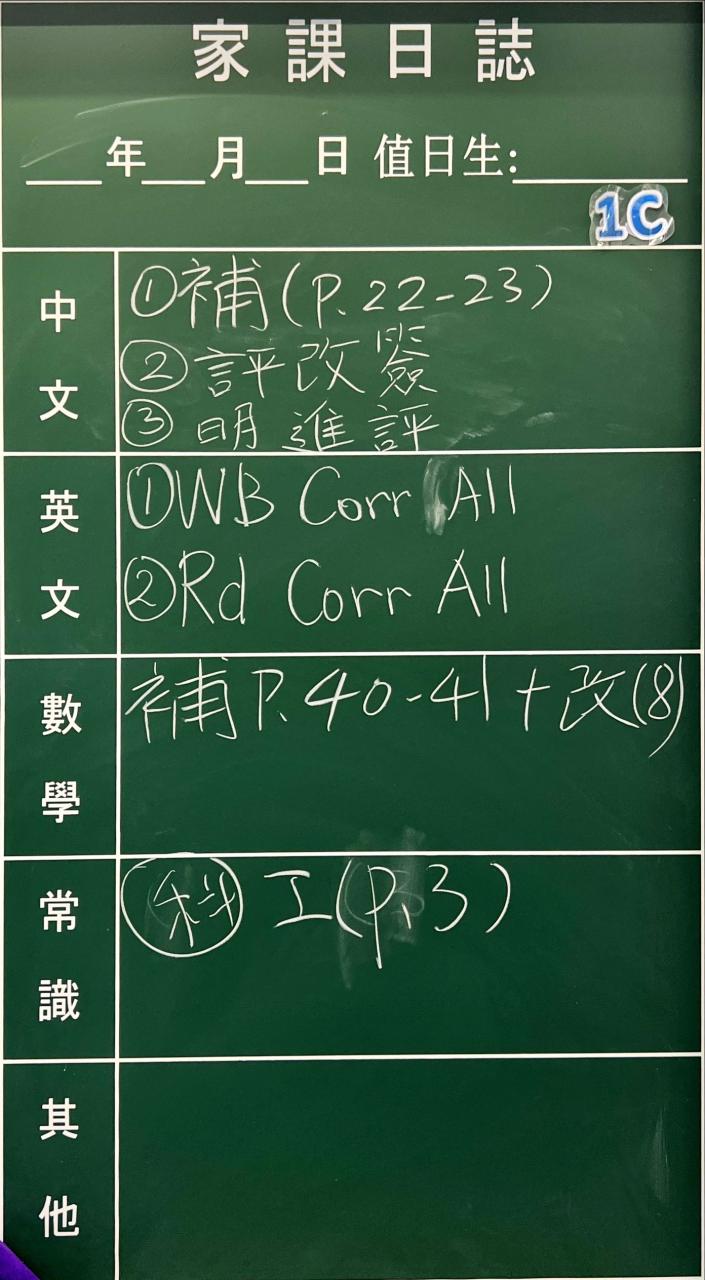 家課日誌
___年___月___日 值日生:______
1C
中文
①補(P.22-23)
②評改簽
③明進評
英文
①WB Corr All
②Rd Corr All
數學
補P.40-41+改(8)
常識
科 工(p.3)
其他